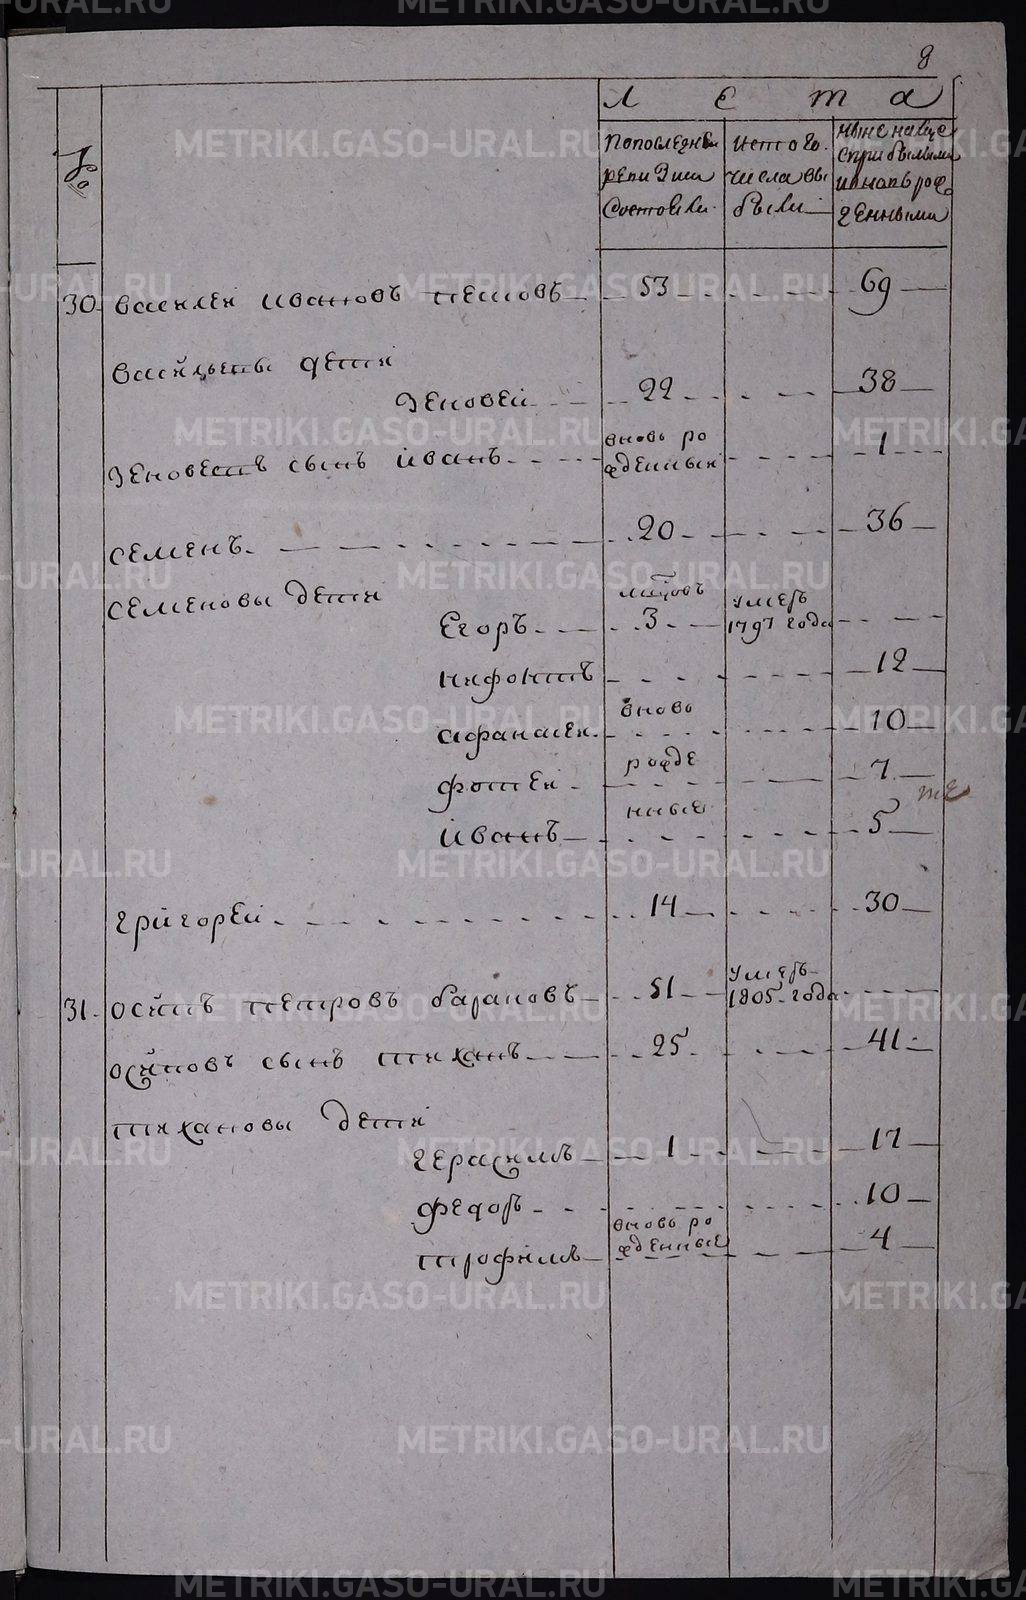 8
№
Л Е т а
По последней
ревизии
Состояли
Ис того
числа вы
были
Ныне на лице
с прибылыми
и вновь рож
денными
30 Василей Ивановъ 53 69
Васильевы дети
Зеновей 22 38
Зеновеевъ сынъ Иванъ вновь ро 1
жденный
Семенъ 20 36
Семеновы дети
Егоръ 3 Умеръ
1797 года
Нифонтъ 12
Афанасей вновь 10
Фотей рожде 7
Иванъ нные 5
те
Григорей 14 30
31 Осипъ Петровъ Барановъ 51 Умеръ
1805 года
Осиповъ сынъ Тиханъ 25 41
Тихановы дети
Герасимъ 1 17
Федоръ вновь ро 10
Трофимъ жденные 4
METRIKI.GASO-URAL.RU